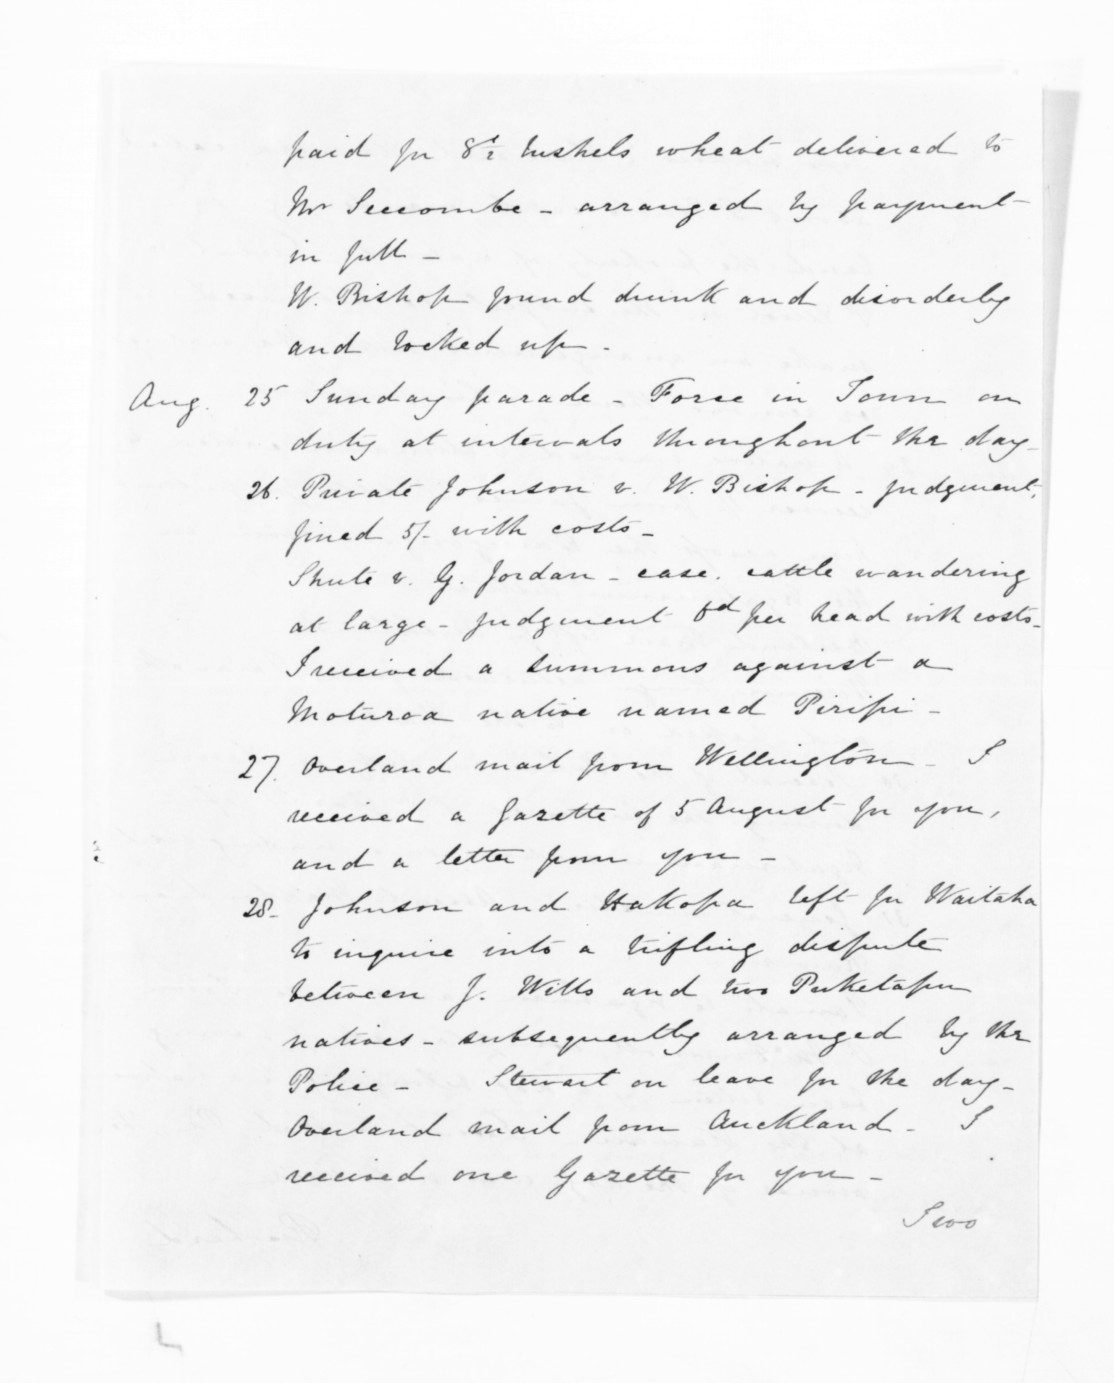 paid for 8½ bushels wheat delivered to
Mr Seccombe - arranged by payment
in full -
W. Bishop found drunk and disorderly
and locked up -
Aug. 25 Sunday parade - Force in Town on
duty at intervals throughout the day -
26. Private Johnson v. W. Bishop - judgment,
fined 5/- with costs -
Shute v. G. Jordan - case, cattle wandering
at large - judgment 6d per head with costs -
I received a summons against a
Moturoa native named Piripi -
27. Overland mail from Wellington - I
received a Gazette of 5 August for you,
and a letter from you -
28. Johnson and Hakopa left for Waitaha
to inquire into a trifling dispute
between J. Wills and two Puketapu
natives - subsequently arranged by the
Police - Stewart on leave for the day -
Overland mail from Auckland - I
received one Gazette for you -
Two